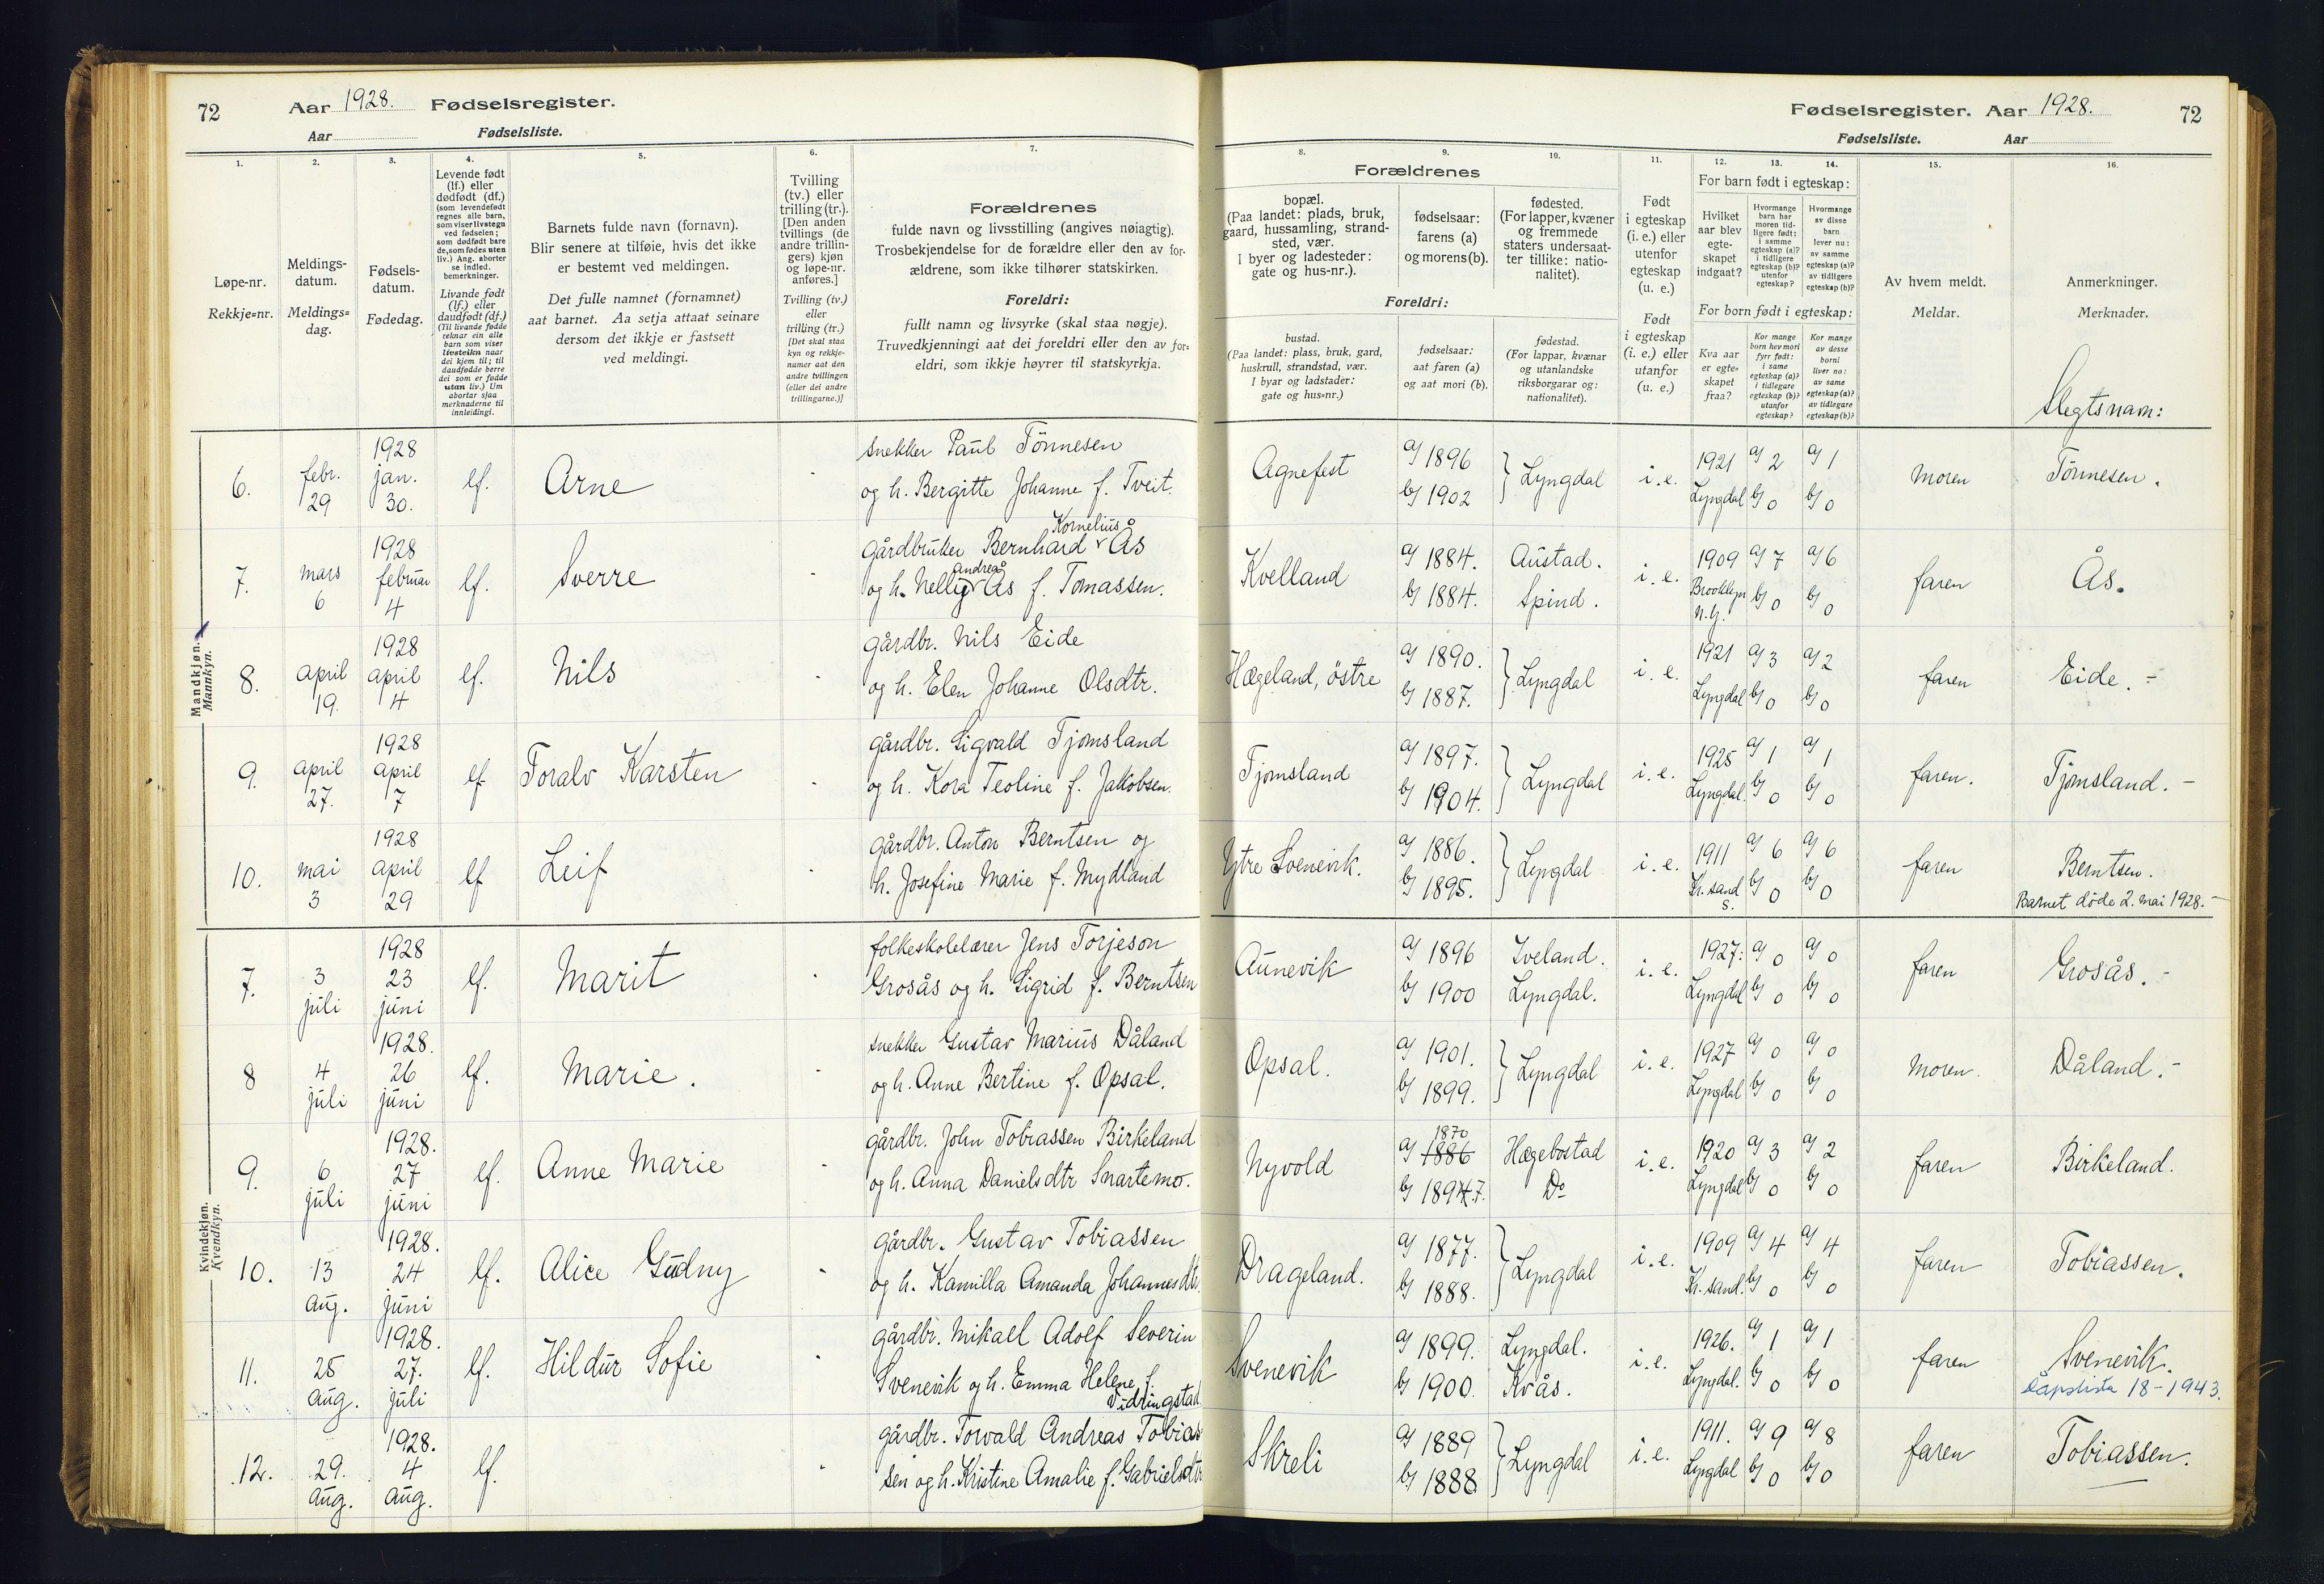 72 Aar 1928. Fødselsregister.
Aar Fødselsliste.
Fødselsregister. Aar 1928. 72
Fødselsliste. Aar
1. 2. 3. 4. 5. 6. 7.
Løpe-nr.
Rekkje=nr.
Meldings-
datum.
Meldings=
dag.
Fødsels-
datum.
Fødedag.
Levende født
(lf.) eller
dødfødt (df.)
(som levendefødt
regnes alle barn,
som viser livstegn
ved fødselen;
som dødfødt bare
de, som fødes uten
liv.) Ang. aborter
se indled.
bemerkninger.
Livande født
(lf.) eller
daudfødt (df.)
(Til livande fødde
reknar ein alle
barn som viser
livsteikn naar
dei kjem til; til
daudfødde berre
dei som er fødde
utan liv.) Um
abortar sjaa
merknaderne til
innleidingi.
Barnets fulde navn (fornavn).
Blir senere at tilføie, hvis det ikke
er bestemt ved meldingen.
Det fulle namnet (fornamnet)
aat barnet. Aa setja attaat seinare
dersom det ikkje er fastsett
ved meldingi.
Tvilling
(tv.) eller
trilling (tr.).
[Den anden
tvillings (de
andre trillin-
gers) kjøn
og løpe-nr.
anføres.]
Tvilling (tv.)
eller
trilling (tr.)
[Det skal staa
kyn og rekkje-
numer aat den
andre tvillingen
(eller dei andre
trillingarne.)]
Forældrenes
fulde navn og livsstilling (angives nøiagtig).
Trosbekjendelse for de forældre eller den av for-
ældrene, som ikke tilhører statskirken.
Foreldri:
fullt namn og livsyrke (skal staa nøgje).
Truvedkjenningi aat dei foreldri eller den av for=
eldri, som ikkje høyrer til statskyrkja.
8. 9. 10. 11. 12. 13. 14. 15. 16.
Forældrenes
bopæl.
(Paa landet: plads, bruk,
gaard, hussamling, strand-
sted, vær.
I byer og ladesteder:
gate og hus-nr.).
fødselsaar:
farens (a)
og morens (b).
fødested.
(For lapper, kvæner
og fremmede
staters undersaat-
ter tillike: natio-
nalitet).
Foreldri:
bustad.
(Paa landet: plass, bruk, gard,
huskrull, strandstad, vær.
I byar og ladstader:
gate og hus=nr.)
fødselsaar:
aat faren (a)
og aat mori (b).
fødestad.
(For lappar, kvænar
og utanlandske
riksborgarar og:
nationalitet).
Født
i egteskap
(i. e.) eller
utenfor
egteskap
(u. e.)
Født
i egteskap
(i. e.) eller
utanfor
(u. e.)
For barn født i egteskap:
Hvilket
aar blev
egte-
skapet
indgaat?
Hvormange
barn har
moren tid-
ligere født:
i samme
egteskap (a)?
i tidligere
egteskap (b)?
utenfor
egteskap?
Hvormange
av disse
barn
lever nu:
av samme
egteskap (a)?
av tidligere
egteskap (b)?
For born født i egteskap:
Kva aar
er egte=
skapet
fraa?
Kor mange
born hev mori
fyrr født:
i same
egteskap (a)?
i tidlegare
egteskap (b)?
utanfor
egteskap?
Kor mange
av desse
borni
liver no:
av same
egteskap (a)?
av tidlegare
egteskap (b)?
Av hvem meldt.
Meldar.
Anmerkninger.
Merknader.
Slegtsnavn:
Mandkjøn.
Mannkyn.
6. febr. 29 1928 jan. 30. lf. Arne -
snekker Paul Tönnesen
og h. Bergitte Johanne f. Tveit.
Agnefest a) 1896 b) 1902 } Lyngdal i. e. 1921 Lyngdal a) 2 b) 0 a) 1 b) 0 moren Tönnesen.
7. mars 6 1928 februar 4 lf. Sverre -
Kornelius
gårdbruker Bernhard v Ås
Andrea
og h. Nelly v Ås f. Tomassen.
Kvelland a) 1884. b) 1884. Austad. Spind. i. e. 1909 Brooklyn N.Y. a) 7 b) 0 a) 6 b) 0 faren Ås.
8. april 19. 1928 april 4 lf. Nils -
gårdbr. Nils Eide
og h. Elen Johanne Olsdtr.
Hægeland, östre a) 1890. b) 1887. } Lyngdal i. e. 1921 Lyngdal a) 3 b) 0 a) 2 b) 0 faren Eide. -
9. april 27. 1928 april 7 lf Toralv Karsten -
gårdbr. Sigvald Tjomsland
og h. Kora Teoline f. Jakobsen.
Tjomsland a) 1897. b) 1904. } Lyngdal i. e. 1925 Lyngdal. a) 1 b) 0 a) 1 b) 0 faren. Tjomsland. -
10. mai 3 1928 april 29 lf Leif -
gårdbr. Anton Berntsen og
h. Josefine Marie f. Mydland
Ytre Svenevik. a) 1886. b) 1895. } Lyngdal i. e. 1911 Kr. sand s. a) 6 b) 0 a) 6 b) 0 faren Berntsen.
Barnet døde 2. mai 1928. -
Kvindekjøn.
Kvendkyn.
7. 3 juli 1928 23 juni lf. Marit -
folkeskolelærer Jens Torjeson
Grosås og h. Sigrid f. Berntsen
Aunevik a) 1896 b) 1900 Iveland. Lyngdal. i. e. 1927: Lyngdal a) 0 b) 0 a) 0 b) 0 faren Grosås. -
8 4 juli 1928. 26 juni lf. Marie. -
snekker Gustav Marius Dåland
og h. Anne Bertine f. Opsal.
Opsal. a) 1901. b) 1899. } Lyngdal i. e. 1927 Lyngdal a) 0 b) 0 a) 0 b) 0 moren. Dåland. -
9. 6 juli 1928. 27 juni lf. Anne Marie -
gårdbr. John Tobiassen Birkeland
og h. Anna Danielsdtr Snartemo.
Nyvold 1870 a) 1886 b) 1894.7. Hægebostad Do i. e. 1920 Lyngdal a) 3 b) 0 a) 2 b) 0 faren Birkeland.
10. 13 aug. 1928. 24 juni lf. Alice Gudny -
gårdbr. Gustav Tobiassen
og h. Kamilla Amanda Johannesdtr.
Drageland. a) 1877. b) 1888. } Lyngdal i. e. 1909 Kr. sand. a) 4 b) 0 a) 4 b) 0 faren Tobiassen.
11. 25 aug. 1928. 27. juli lf. Hildur Sofie -
gårdbr. Mikael Adolf Severin
Svenevik og h. Emma Helene f.
Vidringstad
Svenevik a) 1899. b) 1900. Lyngdal. Kvås. i. e. 1926. Lyngdal. a) 1 b) 0 a) 1 b) 0 faren Svenevik.
Dåpslista 18-1943.
12. 29. aug. 1928. 4 aug. lf. -
gårdbr. Torvald Andreas Tobias
sen og h. Kristine Amalie f. Gabrielsdtr
Skreli a) 1889 b) 1888 } Lyngdal i. e. 1911. Lyngdal a) 9 b) 0 a) 8 b) 0 faren Tobiassen.